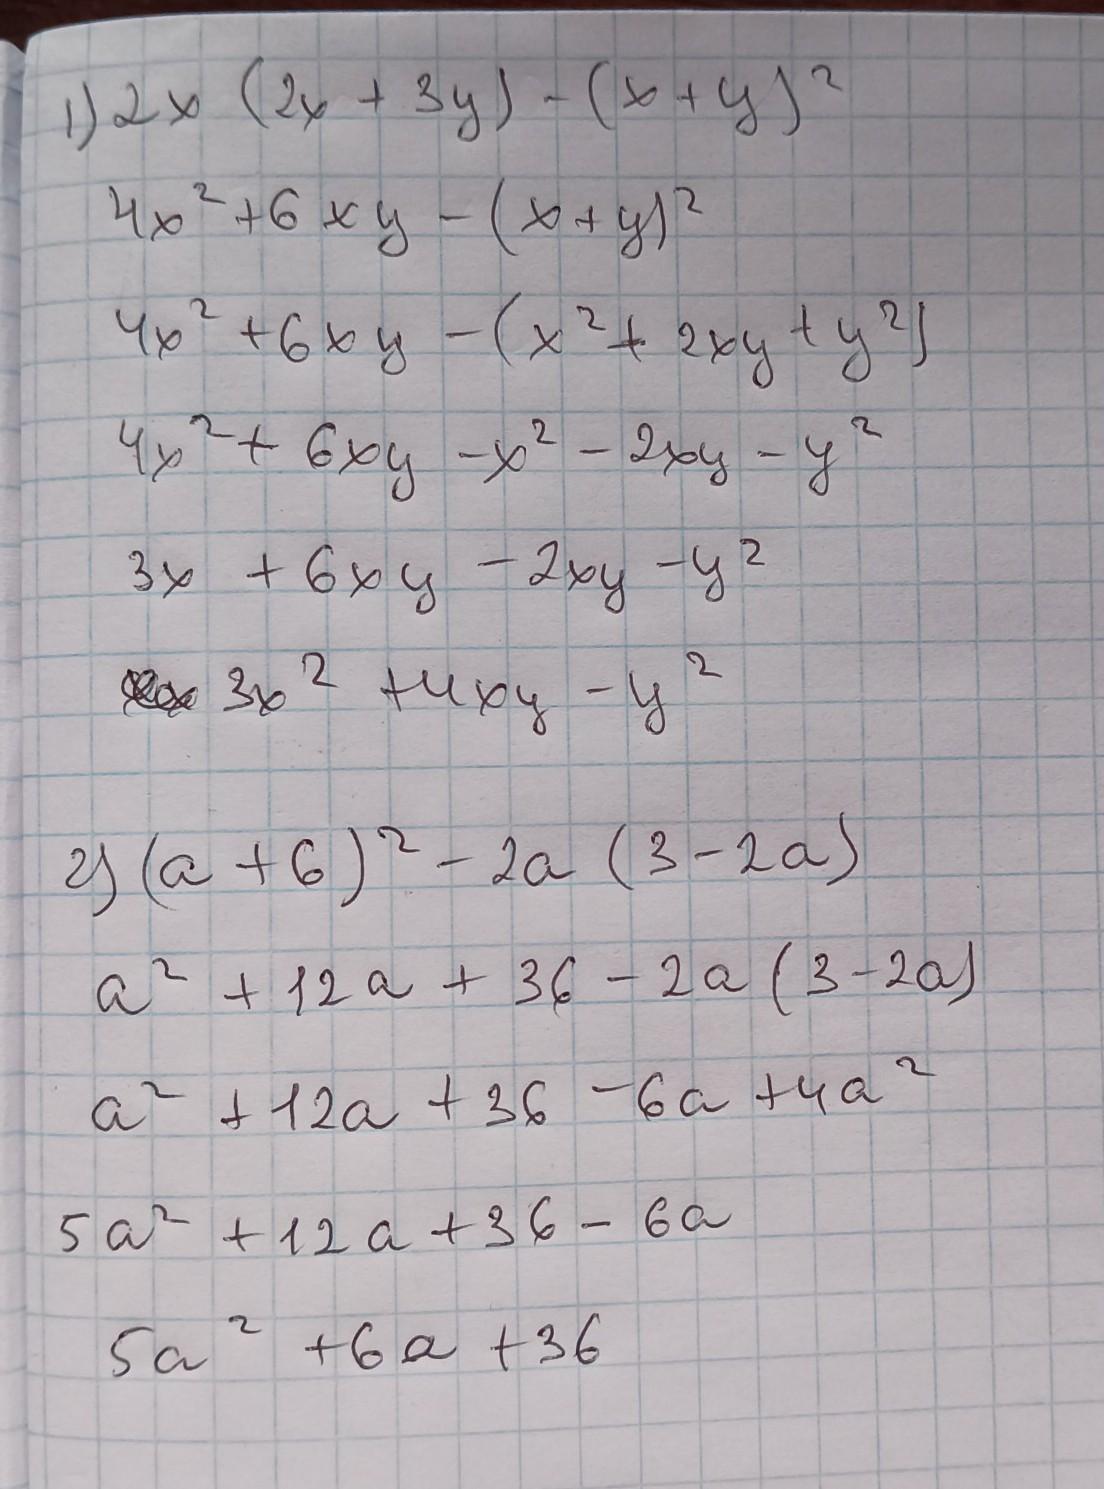 1) 2x (2x + 3y) - (x+y)²
4x² + 6xy - (x+y)²
4x² + 6xy - (x² + 2xy + y²)
4x² + 6xy - x² - 2xy - y²
3x + 6xy - 2xy - y²
3x² + 4xy - y²
2) (a + 6)² - 2a (3 - 2a)
a² + 12a + 36 - 2a (3 - 2a)
a² + 12a + 36 - 6a + 4a²
5a² + 12a + 36 - 6a
5a² + 6a + 36